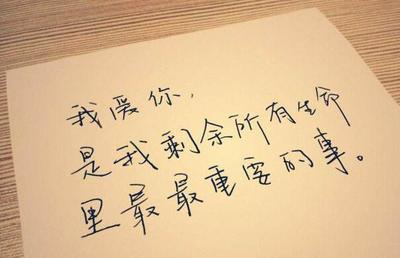 我爱你，
是我剩余所有生命
里最最重要的事。